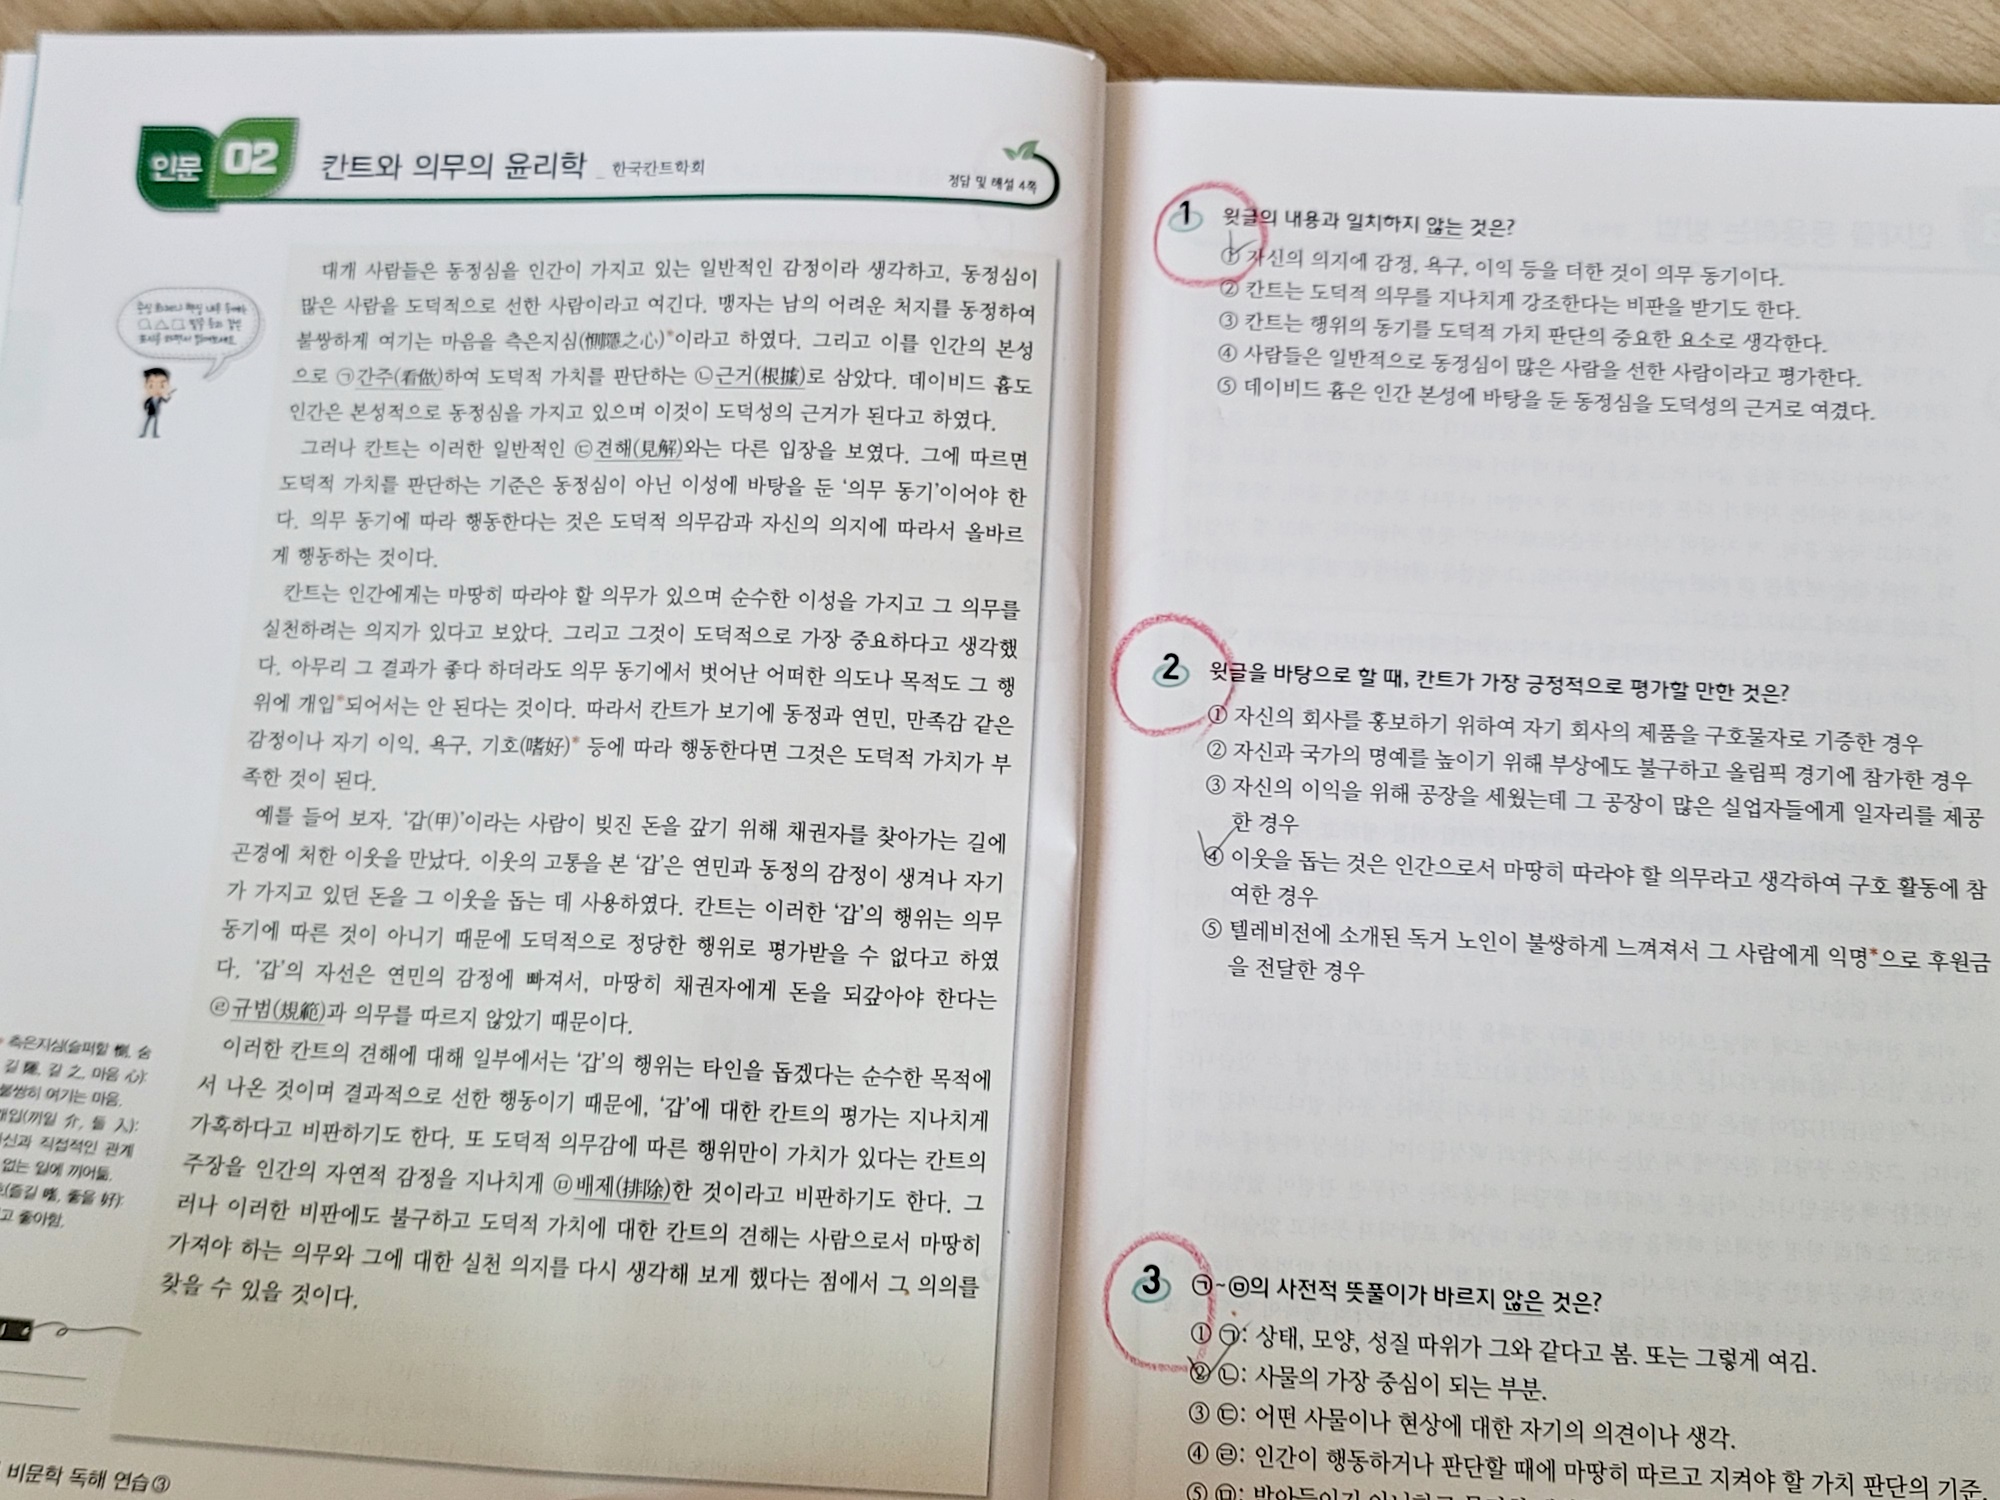 인문 02 칸트와 의무의 윤리학 _ 한국칸트학회
정답 및 해설 4쪽
대개 사람들은 동정심을 인간이 가지고 있는 일반적인 감정이라 생각하고, 동정심이
많은 사람을 도덕적으로 선한 사람이라고 여긴다. 맹자는 남의 어려운 처지를 동정하여
불쌍하게 여기는 마음을 측은지심(惻隱之心)*이라고 하였다. 그리고 이를 인간의 본성
으로 ㉠간주(看做)하여 도덕적 가치를 판단하는 ㉡근거(根據)로 삼았다. 데이비드 흄도
인간은 본성적으로 동정심을 가지고 있으며 이것이 도덕성의 근거가 된다고 하였다.
그러나 칸트는 이러한 일반적인 ㉢견해(見解)와는 다른 입장을 보였다. 그에 따르면
도덕적 가치를 판단하는 기준은 동정심이 아닌 이성에 바탕을 둔 ‘의무 동기’이어야 한
다. 의무 동기에 따라 행동한다는 것은 도덕적 의무감과 자신의 의지에 따라서 올바르
게 행동하는 것이다.
칸트는 인간에게는 마땅히 따라야 할 의무가 있으며 순수한 이성을 가지고 그 의무를
실천하려는 의지가 있다고 보았다. 그리고 그것이 도덕적으로 가장 중요하다고 생각했
다. 아무리 그 결과가 좋다 하더라도 의무 동기에서 벗어난 어떠한 의도나 목적도 그 행
위에 개입*되어서는 안 된다는 것이다. 따라서 칸트가 보기에 동정과 연민, 만족감 같은
감정이나 자기 이익, 욕구, 기호(嗜好)* 등에 따라 행동한다면 그것은 도덕적 가치가 부
족한 것이 된다.
예를 들어 보자. ‘갑(甲)’이라는 사람이 빚진 돈을 갚기 위해 채권자를 찾아가는 길에
곤경에 처한 이웃을 만났다. 이웃의 고통을 본 ‘갑’은 연민과 동정의 감정이 생겨나 자기
가 가지고 있던 돈을 그 이웃을 돕는 데 사용하였다. 칸트는 이러한 ‘갑’의 행위는 의무
동기에 따른 것이 아니기 때문에 도덕적으로 정당한 행위로 평가받을 수 없다고 하였
다. ‘갑’의 자선은 연민의 감정에 빠져서, 마땅히 채권자에게 돈을 되갚아야 한다는
㉣규범(規範)과 의무를 따르지 않았기 때문이다.
이러한 칸트의 견해에 대해 일부에서는 ‘갑’의 행위는 타인을 돕겠다는 순수한 목적에
서 나온 것이며 결과적으로 선한 행동이기 때문에, ‘갑’에 대한 칸트의 평가는 지나치게
가혹하다고 비판하기도 한다. 또 도덕적 의무감에 따른 행위만이 가치가 있다는 칸트의
주장을 인간의 자연적 감정을 지나치게 ㉤배제(排除)한 것이라고 비판하기도 한다. 그
러나 이러한 비판에도 불구하고 도덕적 가치에 대한 칸트의 견해는 사람으로서 마땅히
가져야 하는 의무와 그에 대한 실천 의지를 다시 생각해 보게 했다는 점에서 그 의의를
찾을 수 있을 것이다.
* 측은지심(슬퍼할 惻, 숨
길 隱, 갈 之, 마음 心):
불쌍히 여기는 마음.
개입(끼일 介, 들 入):
신과 직접적인 관계
없는 일에 끼어듦.
(즐길 嗜, 좋을 好):
고 좋아함.
비문학 독해 연습③
1 윗글의 내용과 일치하지 않는 것은?
① 자신의 의지에 감정, 욕구, 이익 등을 더한 것이 의무 동기이다.
② 칸트는 도덕적 의무를 지나치게 강조한다는 비판을 받기도 한다.
③ 칸트는 행위의 동기를 도덕적 가치 판단의 중요한 요소로 생각한다.
④ 사람들은 일반적으로 동정심이 많은 사람을 선한 사람이라고 평가한다.
⑤ 데이비드 흄은 인간 본성에 바탕을 둔 동정심을 도덕성의 근거로 여겼다.
2 윗글을 바탕으로 할 때, 칸트가 가장 긍정적으로 평가할 만한 것은?
① 자신의 회사를 홍보하기 위하여 자기 회사의 제품을 구호물자로 기증한 경우
② 자신과 국가의 명예를 높이기 위해 부상에도 불구하고 올림픽 경기에 참가한 경우
③ 자신의 이익을 위해 공장을 세웠는데 그 공장이 많은 실업자들에게 일자리를 제공
한 경우
④ 이웃을 돕는 것은 인간으로서 마땅히 따라야 할 의무라고 생각하여 구호 활동에 참
여한 경우
⑤ 텔레비전에 소개된 독거 노인이 불쌍하게 느껴져서 그 사람에게 익명*으로 후원금
을 전달한 경우
3 ㉠~㉤의 사전적 뜻풀이가 바르지 않은 것은?
① ㉠: 상태, 모양, 성질 따위가 그와 같다고 봄. 또는 그렇게 여김.
② ㉡: 사물의 가장 중심이 되는 부분.
③ ㉢: 어떤 사물이나 현상에 대한 자기의 의견이나 생각.
④ ㉣: 인간이 행동하거나 판단할 때에 마땅히 따르고 지켜야 할 가치 판단의 기준.
⑤ ㉤: